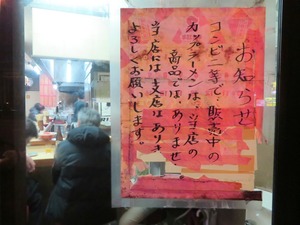 お知らせ
コンビニ等で、販売中の
カップラーメンは、当店の
商品では、ありません。
当店には支店はありま
よろしくお願いします。